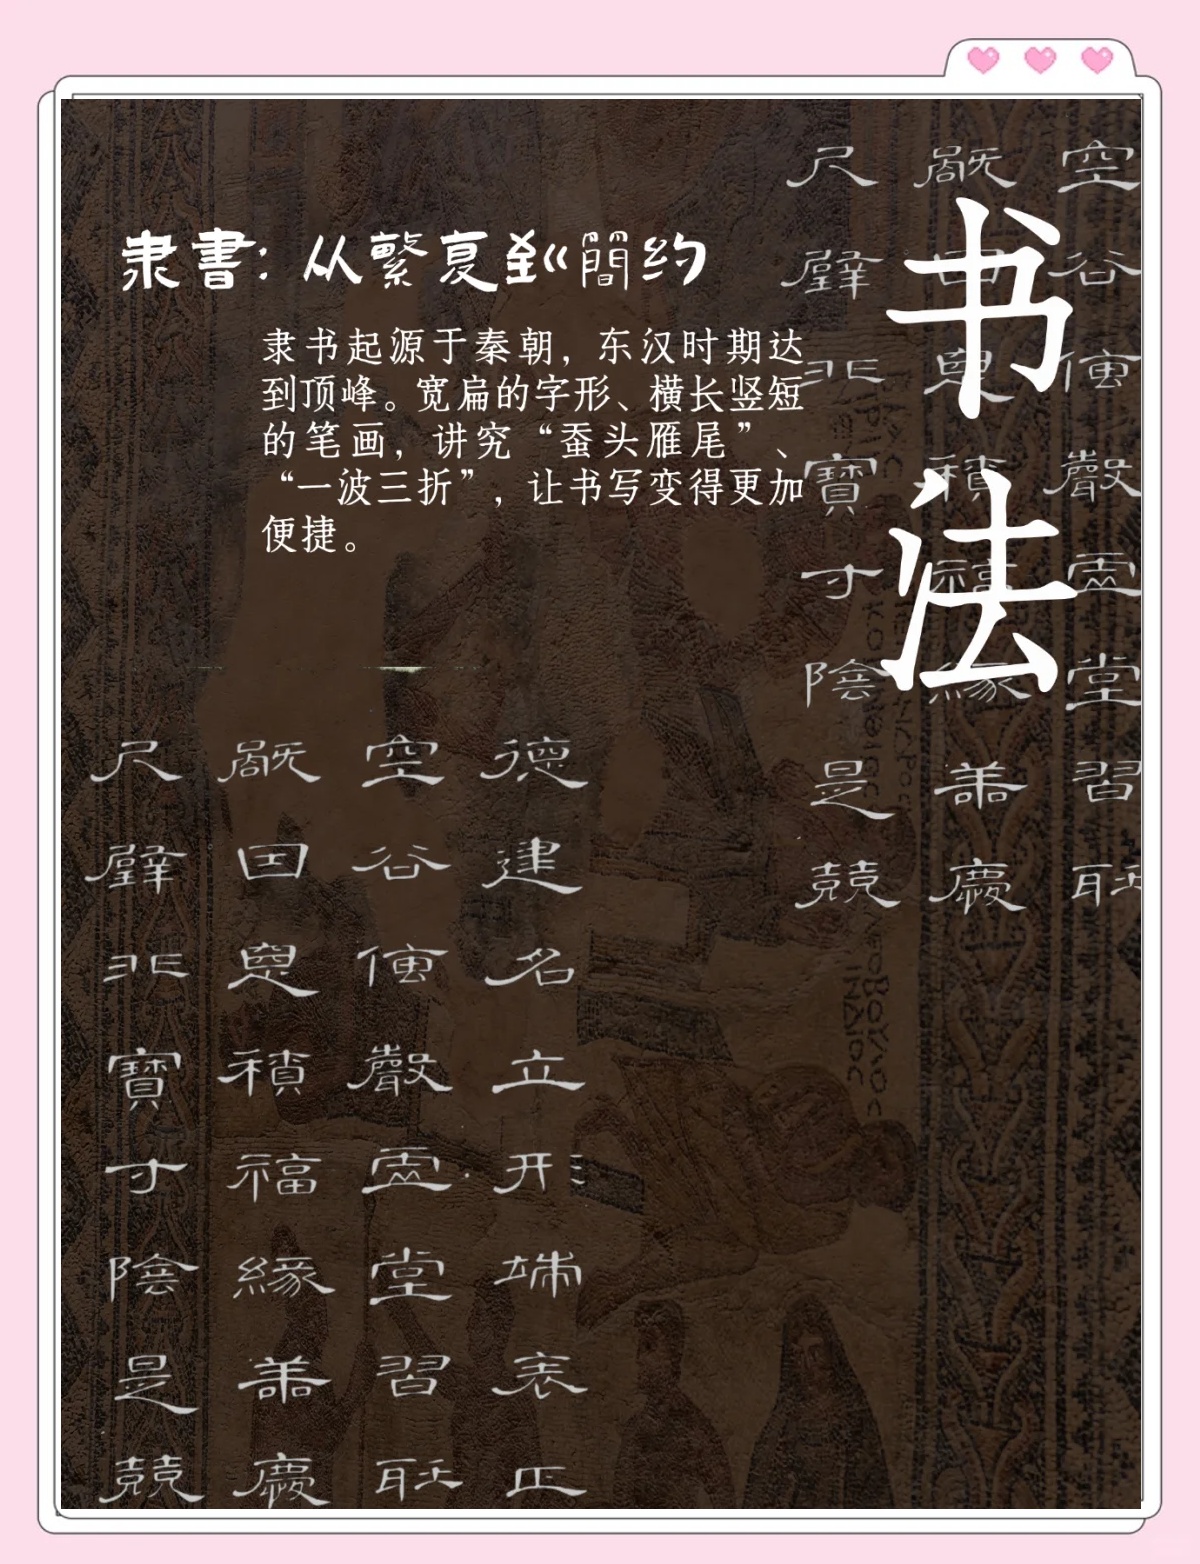 书法
隶書：从繁复到簡约
隶书起源于秦朝，东汉时期达
到顶峰。宽扁的字形、横长竖短
的笔画，讲究“蚕头雁尾”、
“一波三折”，让书写变得更加
便捷。
空谷傳聲虛堂習聽
禍因惡積福緣善慶
尺璧非寶寸陰是競
德建名立形端表正
空谷傳聲虛堂習聽
禍因惡積福緣善慶
尺璧非寶寸陰是競